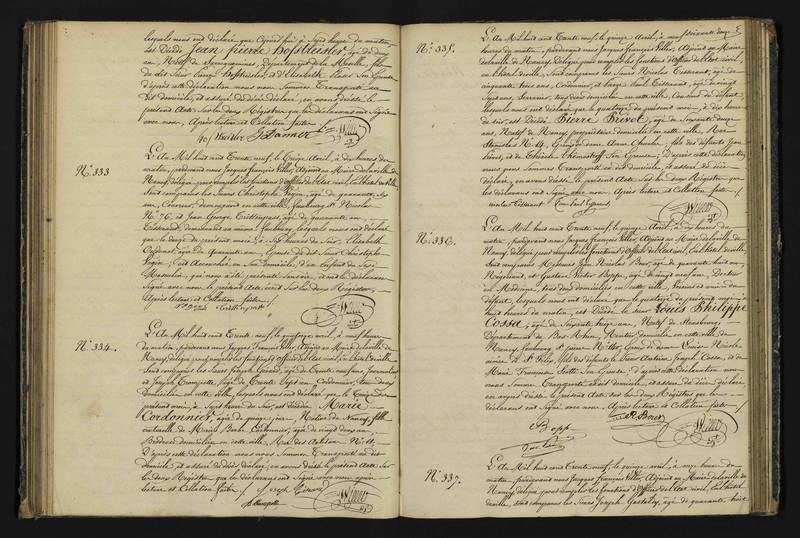 lesquels nous ont déclaré que aujourd'hui à heure du matin
est Décédé Jean pierre Hoffmeister, agé de deux
ans, Natif de Département de la Moselle, fils
du dit Sieur Hoffmeister, et d'Elisabeth son Epouse
D'après cette déclaration nous nous sommes Transporté au
dit domicile, et assuré du décès déclaré, en avons dressé le
présent Acte sur les deux Registres que les déclarans ont signé
avec nous, Après lecture et Collation faite.
N° 333
L'An Mil huit cent Trente neuf, le Avril, à dix heures du
matin, pardevant nous Jacques François Adjoint au Maire de la ville de
Nancy, délégué pour remplir les fonctions d'Officier de l'Etat civil, en l'hôtel de ville,
Sont comparus les Sieurs Christophe agé de quarante
ans, demeurant en cette ville, faubourg St Nicolas
N° 76, et Jean George agé de quarante un
Tisserand, demeurant au même faubourg, lesquels nous ont déclaré
que le du présent mois, à six heures du soir, Elisabeth
agée de Quarante ans, Epouse du dit Sieur Christophe
est Accouchée, en son Domicile, d'un Enfant du Sexe
Masculin, qui nous a été présenté sans vie, et ont les déclarans
Signé avec nous le présent Acte inscrit sur les deux Registres,
Après lecture et Collation faite.
N° 334.
L'An Mil huit cent Trente neuf, le quinze avril, à neuf heures
du matin, pardevant nous Jacques François Adjoint au Maire de la ville de
Nancy, délégué pour remplir les fonctions d'Officier de l'Etat civil, en l'hôtel de ville
Sont comparus les Sieurs Joseph Girard, agé de Trente neuf ans, Journalier
et Joseph agé de Trente Sept ans Cordonnier, tous deux
domiciliés en cette ville, lesquels nous ont déclaré que le
présent mois, à Sept heures du soir, est décédée Marie
Cordonnier, agée de quinze jours Native de Nancy, fille
naturelle de Marie Cordonnier, agée de vingt deux ans
Brodeuse domiciliée en cette ville, Rue des N° 11,
D'après cette déclaration nous nous sommes Transporté au dit
domicile, et assuré du décès déclaré, en avons dressé le présent Acte sur
les deux Registres que les déclarans ont Signé avec nous après
lecture et Collation faite. Joseph Girard
N° 335.
L'An Mil huit cent Trente neuf, le quinze Avril, à neuf
heures du matin, pardevant nous Jacques François Adjoint au Maire
de la ville de Nancy, Délégué pour remplir les fonctions d'Officier de l'Etat civil,
en l'hôtel de ville, Sont comparus les Sieurs Nicolas Tisserant, agé de
cinquante trois ans, Cordonnier, et Paul Tisserand, agé de vingt
Sept ans, Serrurier, tous deux domiciliés en cette ville, Cousins du défunt,
lesquels nous ont déclaré que le quatorze du présent mois, à dix heures
du soir, est Décédé Pierre Privot, agé de Soixante douze
ans, Natif de Nancy, propriétaire domicilié en cette ville, Rue
Stanislas N° 14, Epoux de Dame Anne Charlier, fils des défunts Jean
Privot, et de Thérèse Son Epouse; D'après cette déclaration
nous nous sommes Transporté au dit domicile, et assuré du décès
déclaré, en avons dressé le présent Acte sur les deux Registres que
les déclarans ont Signé avec nous, Après lecture et Collation faite.
N° 336.
L'An Mil huit cent Trente neuf, le quinze Avril, à dix heures du
matin, pardevant nous Jacques François Adjoint au Maire de la ville de
Nancy, délégué pour remplir les fonctions d'Officier de l'Etat civil, en l'hôtel de ville,
Sont comparus Messieurs Jean Nicolas agé de quarante huit ans
Négociant, et Gustave Victor Bopp, agé de vingt neuf ans, Docteur
en Médecine, tous deux domiciliés en cette ville, Voisins et amis du
défunt, lesquels nous ont déclaré que le quatorze du présent mois à
huit heures du matin, est Décédé le Sieur Louis Philippe
Cossa, agé de Soixante treize ans, Natif de Strasbourg,
Département du Bas Rhin, Rentier domicilié en cette ville de
Nancy, faubourg St pierre N° Epoux de Dame Louise Nicole
fils des défunts le Sieur Antoine Joseph Cossa, et de
Marie Françoise Son Epouse, D'après cette déclaration nous
nous sommes Transporté au dit domicile, et assuré du décès déclaré,
en avons dressé le présent Acte sur les deux Registres que les
déclarans ont Signé avec nous, Après lecture et Collation faite.
Bopp
N° 337.
L'An Mil huit cent Trente neuf, le quinze avril, à onze heures du
matin pardevant nous Jacques François Adjoint au Maire de la ville de
Nancy, délégué pour remplir les fonctions d'Officier de l'Etat civil, en l'hôtel
de ville, Sont comparus les Sieurs Joseph agé de quarante huit